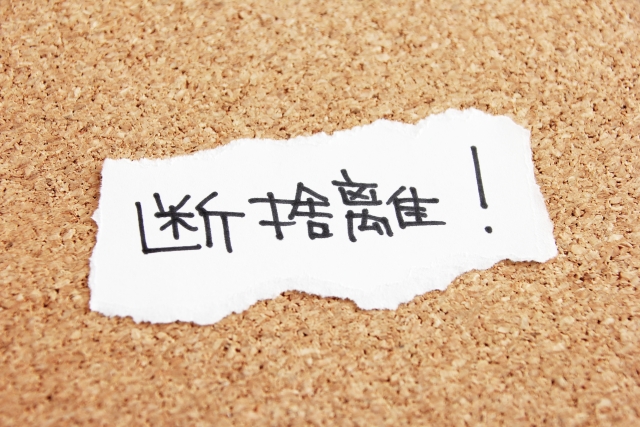 断捨離！